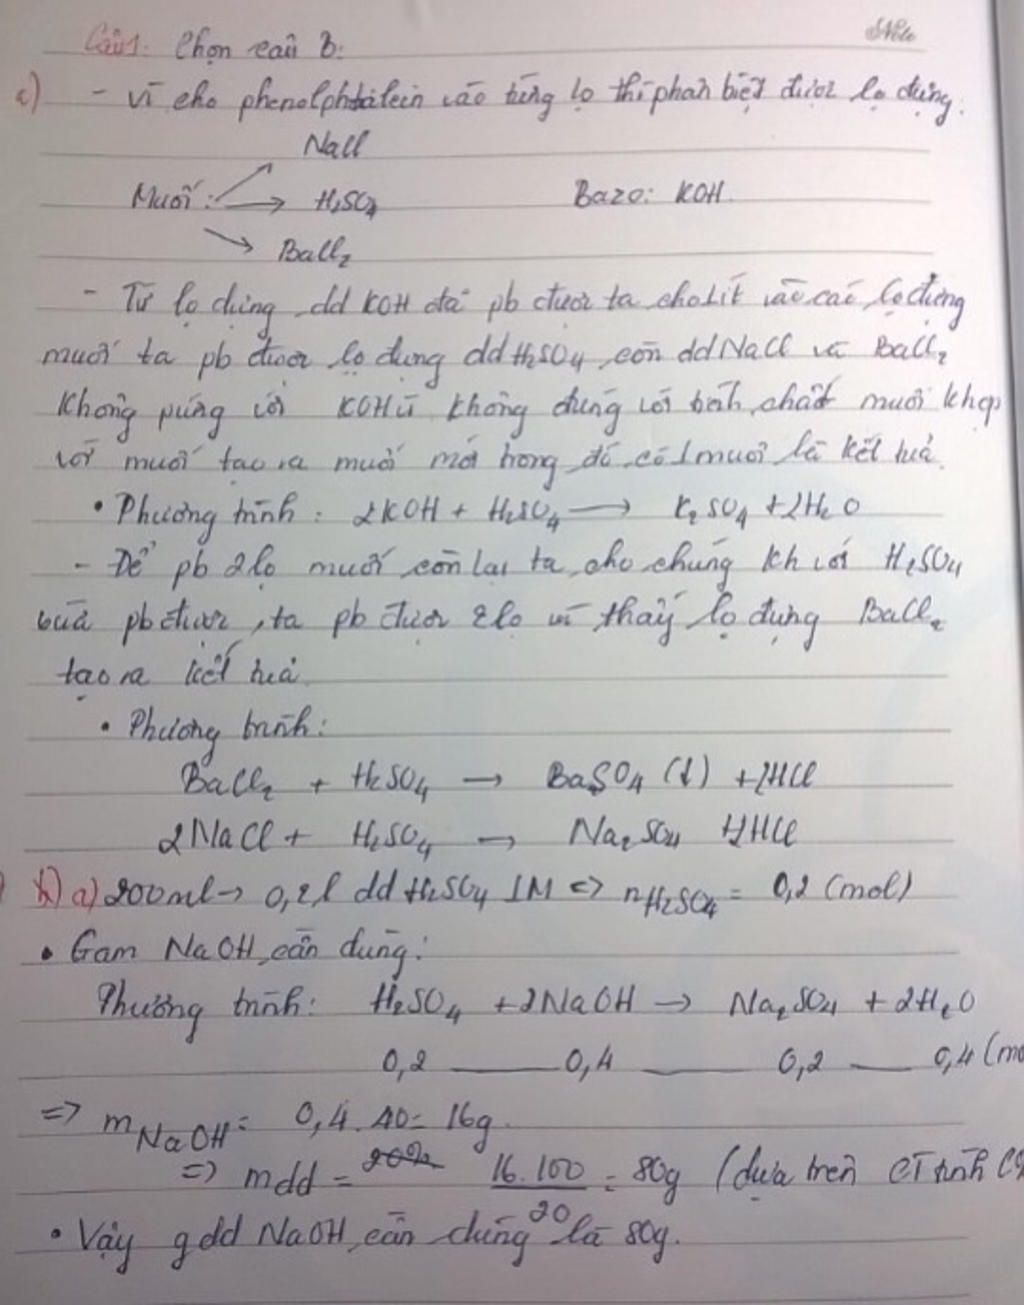 Câu1: Chọn câu b:
c) - vì cho phenolphtalein vào từng lọ thì phân biệt được lọ đựng:
NaCl
Muối: H₂SO₄ Bazo: KOH.
BaCl₂
- Từ lọ đựng dd KOH đã pb được ta cho lít vào các lọ đựng
muối ta pb được lọ đựng dd H₂SO₄, còn dd NaCl và BaCl₂
không pứng với KOH vì không đúng với tính chất muối
với muối tạo ra muối mới trong đó có 1 muối là kết tủa.
• Phương trình: 2KOH + H₂SO₄ → K₂SO₄ + 2H₂O
- Để pb 2 lọ muối còn lại ta cho chúng với H₂SO₄
vừa pb được, ta pb được 2 lọ vì thấy lọ đựng BaCl₂
tạo ra kết tủa
• Phương trình:
BaCl₂ + H₂SO₄ → BaSO₄ (↓) + 2HCl
2NaCl + H₂SO₄ → Na₂SO₄ + 2HCl
a) 200ml → 0,2l dd H₂SO₄ 1M => nH₂SO₄ = 0,2 (mol)
• Gam NaOH cần dùng:
Phương trình: H₂SO₄ + 2NaOH → Na₂SO₄ + 2H₂O
0,2 — 0,4 — 0,2 — 0,4 (mo
=> mNaOH = 0,4 . 40 = 16g.
=> mdd = 16.100/20 = 80g (dựa trên CT tính C%
• Vậy g dd NaOH cần dùng là 80g.